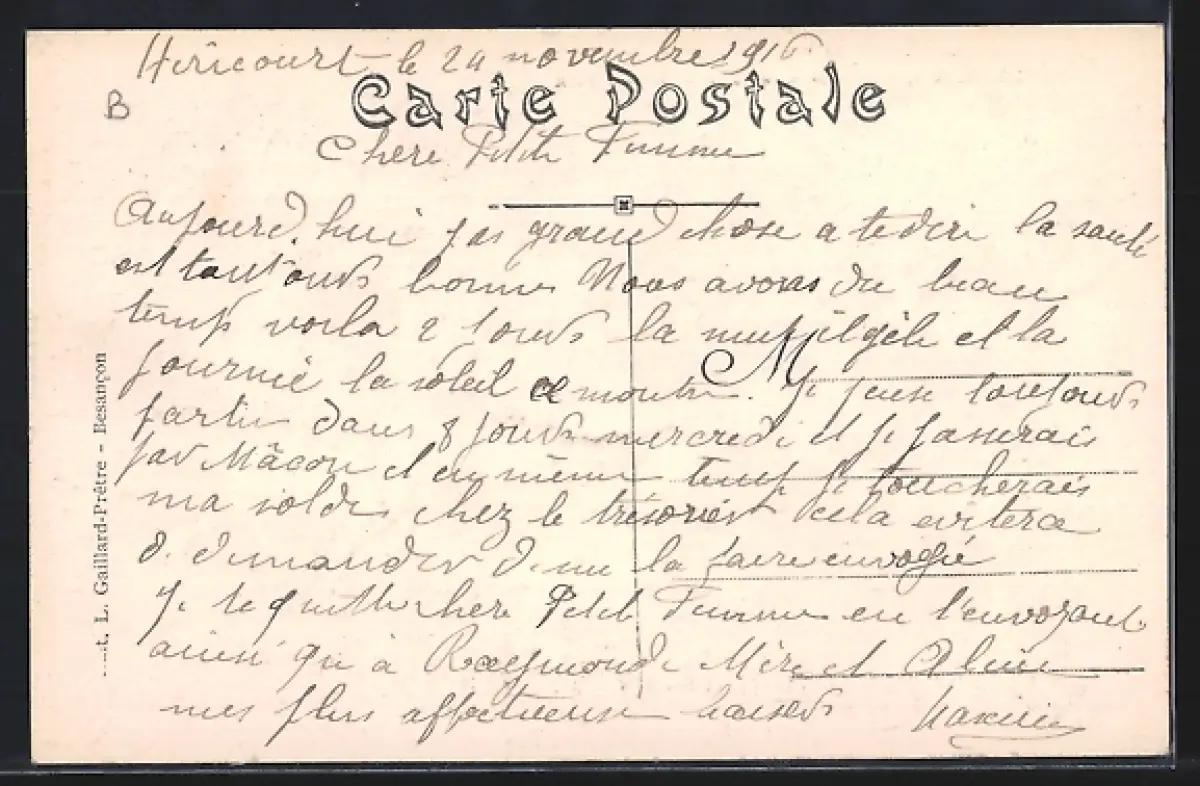 Héricourt le 24 novembre 1916
B
Carte Postale
Chere Petite Femme
Aujourd'hui pas grand chose a te dire la santé
est toujours bonne Nous avons du beau
temps voila 2 jours la nuit il gèle et la
M
journée le soleil se montre. Je pense toujours
partir dans 8 jours mercredi et je passerais
par Mâcon et en même temps je toucherais
ma solde chez le trésorier cela evitera
de demander de me la faire envoyé
Je te quitte chere Petite Femme en t'envoyant
ainsi qu'a Raymonde Mère et Aline
mes plus affectueux baisers
L. Gaillard-Prêtre - Besançon